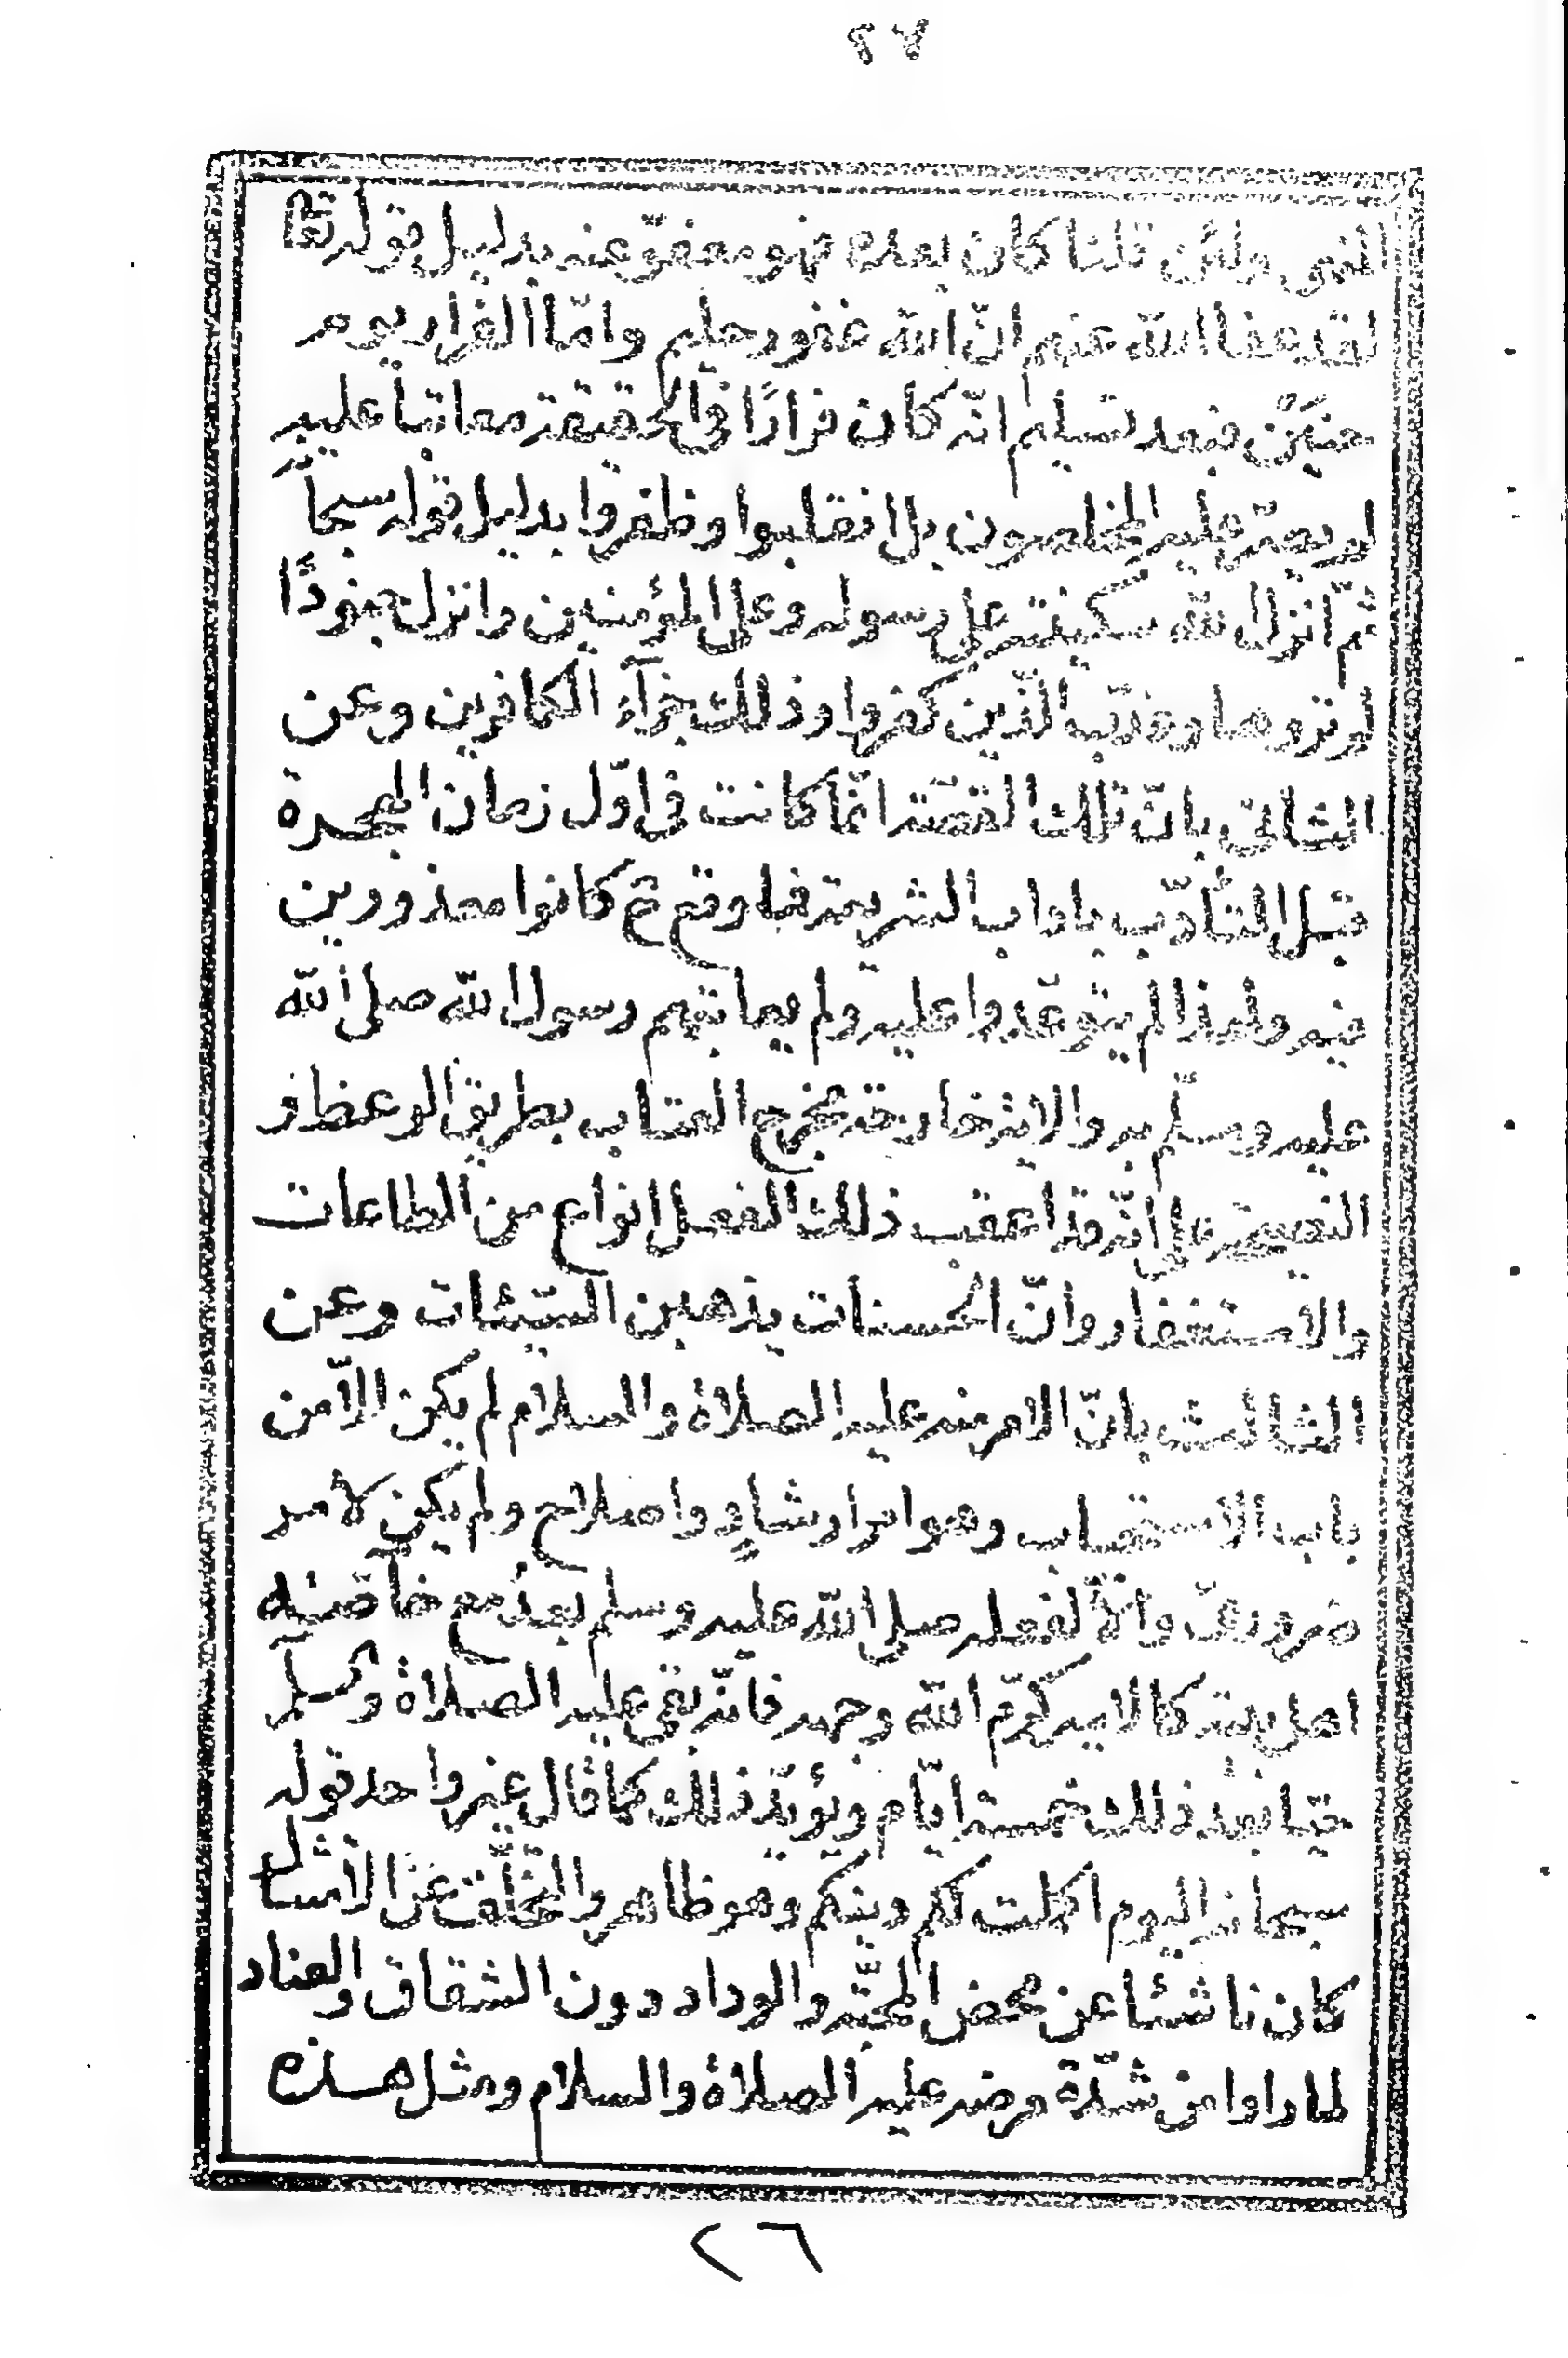 ٢٧
النهى ولئن قلنا كان بعده فهو معفوّ عنه بدليل قوله تعا
لقد عفا الله عنهم انّ الله غفور حليم وامّا الفرار يوم
حنين فبعد تسليم انّه كان فرارًا فى الحقيقة معاتبا عليه
لم يصرّ عليه المخلصون بل انقلبوا وظفروا بدليل قوله سبحا
ثمّ انزل الله سكينته على رسوله وعلى المؤمنين وانزل جنودًا
لم تروها وعذّب الّذين كفروا وذلك جزآء الكافرين وعن
الثانى بانّ تلك القصّة انّما كانت فى اوّل زمان الهجرة
قبل التأدّب باداب الشريعة فما وقع ثم كانوا معذورين
فيه ولهذا لم يتوعّدوا عليه ولم يعاتبهم رسول الله صلى الله
عليه وسلّم به والاية خارجة مخرج العتاب بطريق الوعظ و
النصيحة على انّه قد اعقب ذلك الفعل انواع من الطاعات
والاستغفار وانّ الحسنات يذهبن السّيّئات وعن
الثالث بانّ الامر منه عليه الصلاة والسلام لم يكن الاّ من
باب الاستحباب وهو امر ارشادٍ واصلاح ولم يكن لامر
ضرورىّ والاّ لفعله صلى الله عليه وسلم بعد مع خاصّة
اهل بيته كالامير كرّم الله وجهه فانّه بقى عليه الصلاة والسلم
حيّا بعد ذلك خمسة ايّام ويؤيّد ذلك كما قال غير واحد قوله
سبحانه اليوم اكملت لكم دينكم وهو ظاهر والتخلّف عن الامتثال
كان ناشئا عن محض المحبّة والوداد دون الشقاق والعناد
لما راوا من شدّة مرضه عليه الصلاة والسلام ومثل هذه
٢٦